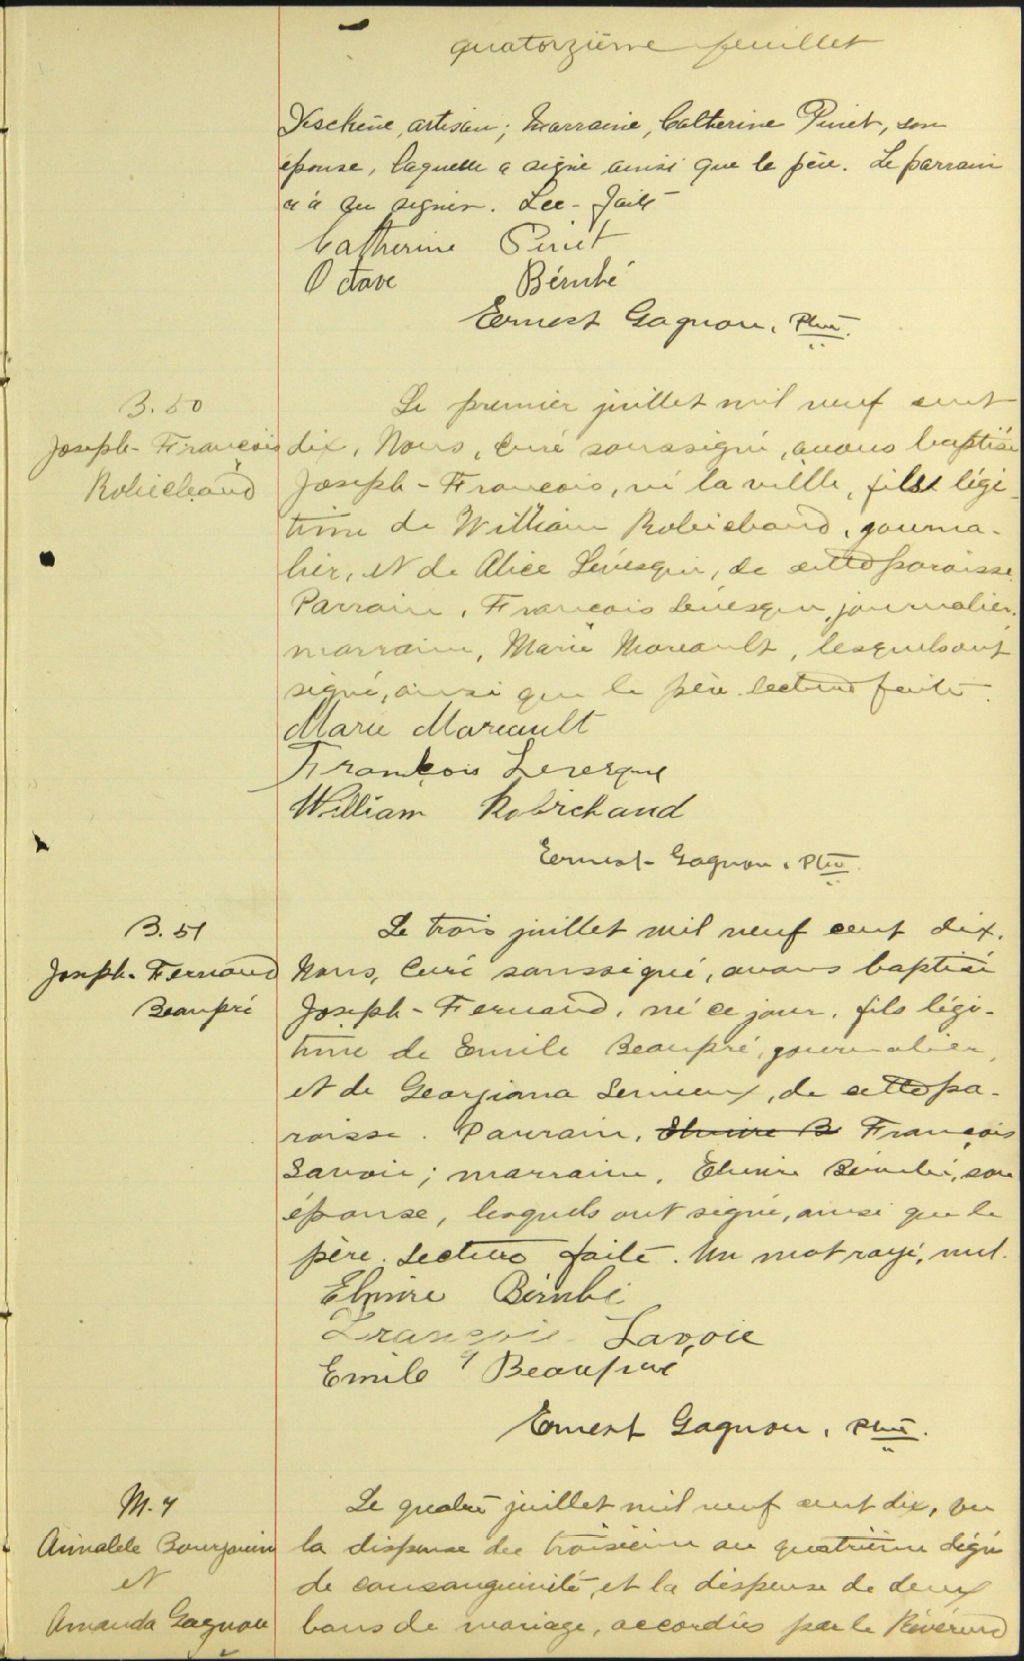 quatorzième feuillet
Deschène, artisan; Marraine, Catherine Pinet, son
épouse, laquelle a signé ainsi que le père. Le parrain
n'a su signer. Lec- faite
Catherine Pinet
Octave Bérubé
Ernest Gagnon, Ptre.
B. 50
Joseph-François
Robichaud
Le premier juillet mil neuf cent
dix, Nous, Curé soussigné, avons baptisé
Joseph-François, né la veille, fils légi-
time de William Robichaud, journa-
lier, et de Alice Lévesque, de cette paroisse.
Parrain, François Lévesque, journalier,
marraine, Marie Moreault, lesquels ont
signé, ainsi que le père. Lecture faite.
Marie Moreault
François Levesque
William Robichaud
Ernest Gagnon, Ptre.
B. 51
Joseph-Fernand
Beaupré
Le trois juillet mil neuf cent dix,
Nous, Curé soussigné, avons baptisé
Joseph-Fernand, né ce jour, fils légi-
time de Emile Beaupré, journalier,
et de Georgiana Lemieux, de cette pa-
roisse. Parrain, Elmire B François
Savoie; marraine, Elmire Bérubé, son
épouse, lesquels ont signé, ainsi que le
père. Lecture faite. Un mot rayé, nul.
Elmire Bérubé
François Savoie
Emile Beaupré
Ernest Gagnon, Ptre.
M. 7
Bourgouin
et
Amanda Gagnon
Le quatre juillet mil neuf cent dix, vu
la dispense du troisième au quatrième dégré
de consanguinité, et la dispense de deux
bans de mariage, accordées par le Révérend